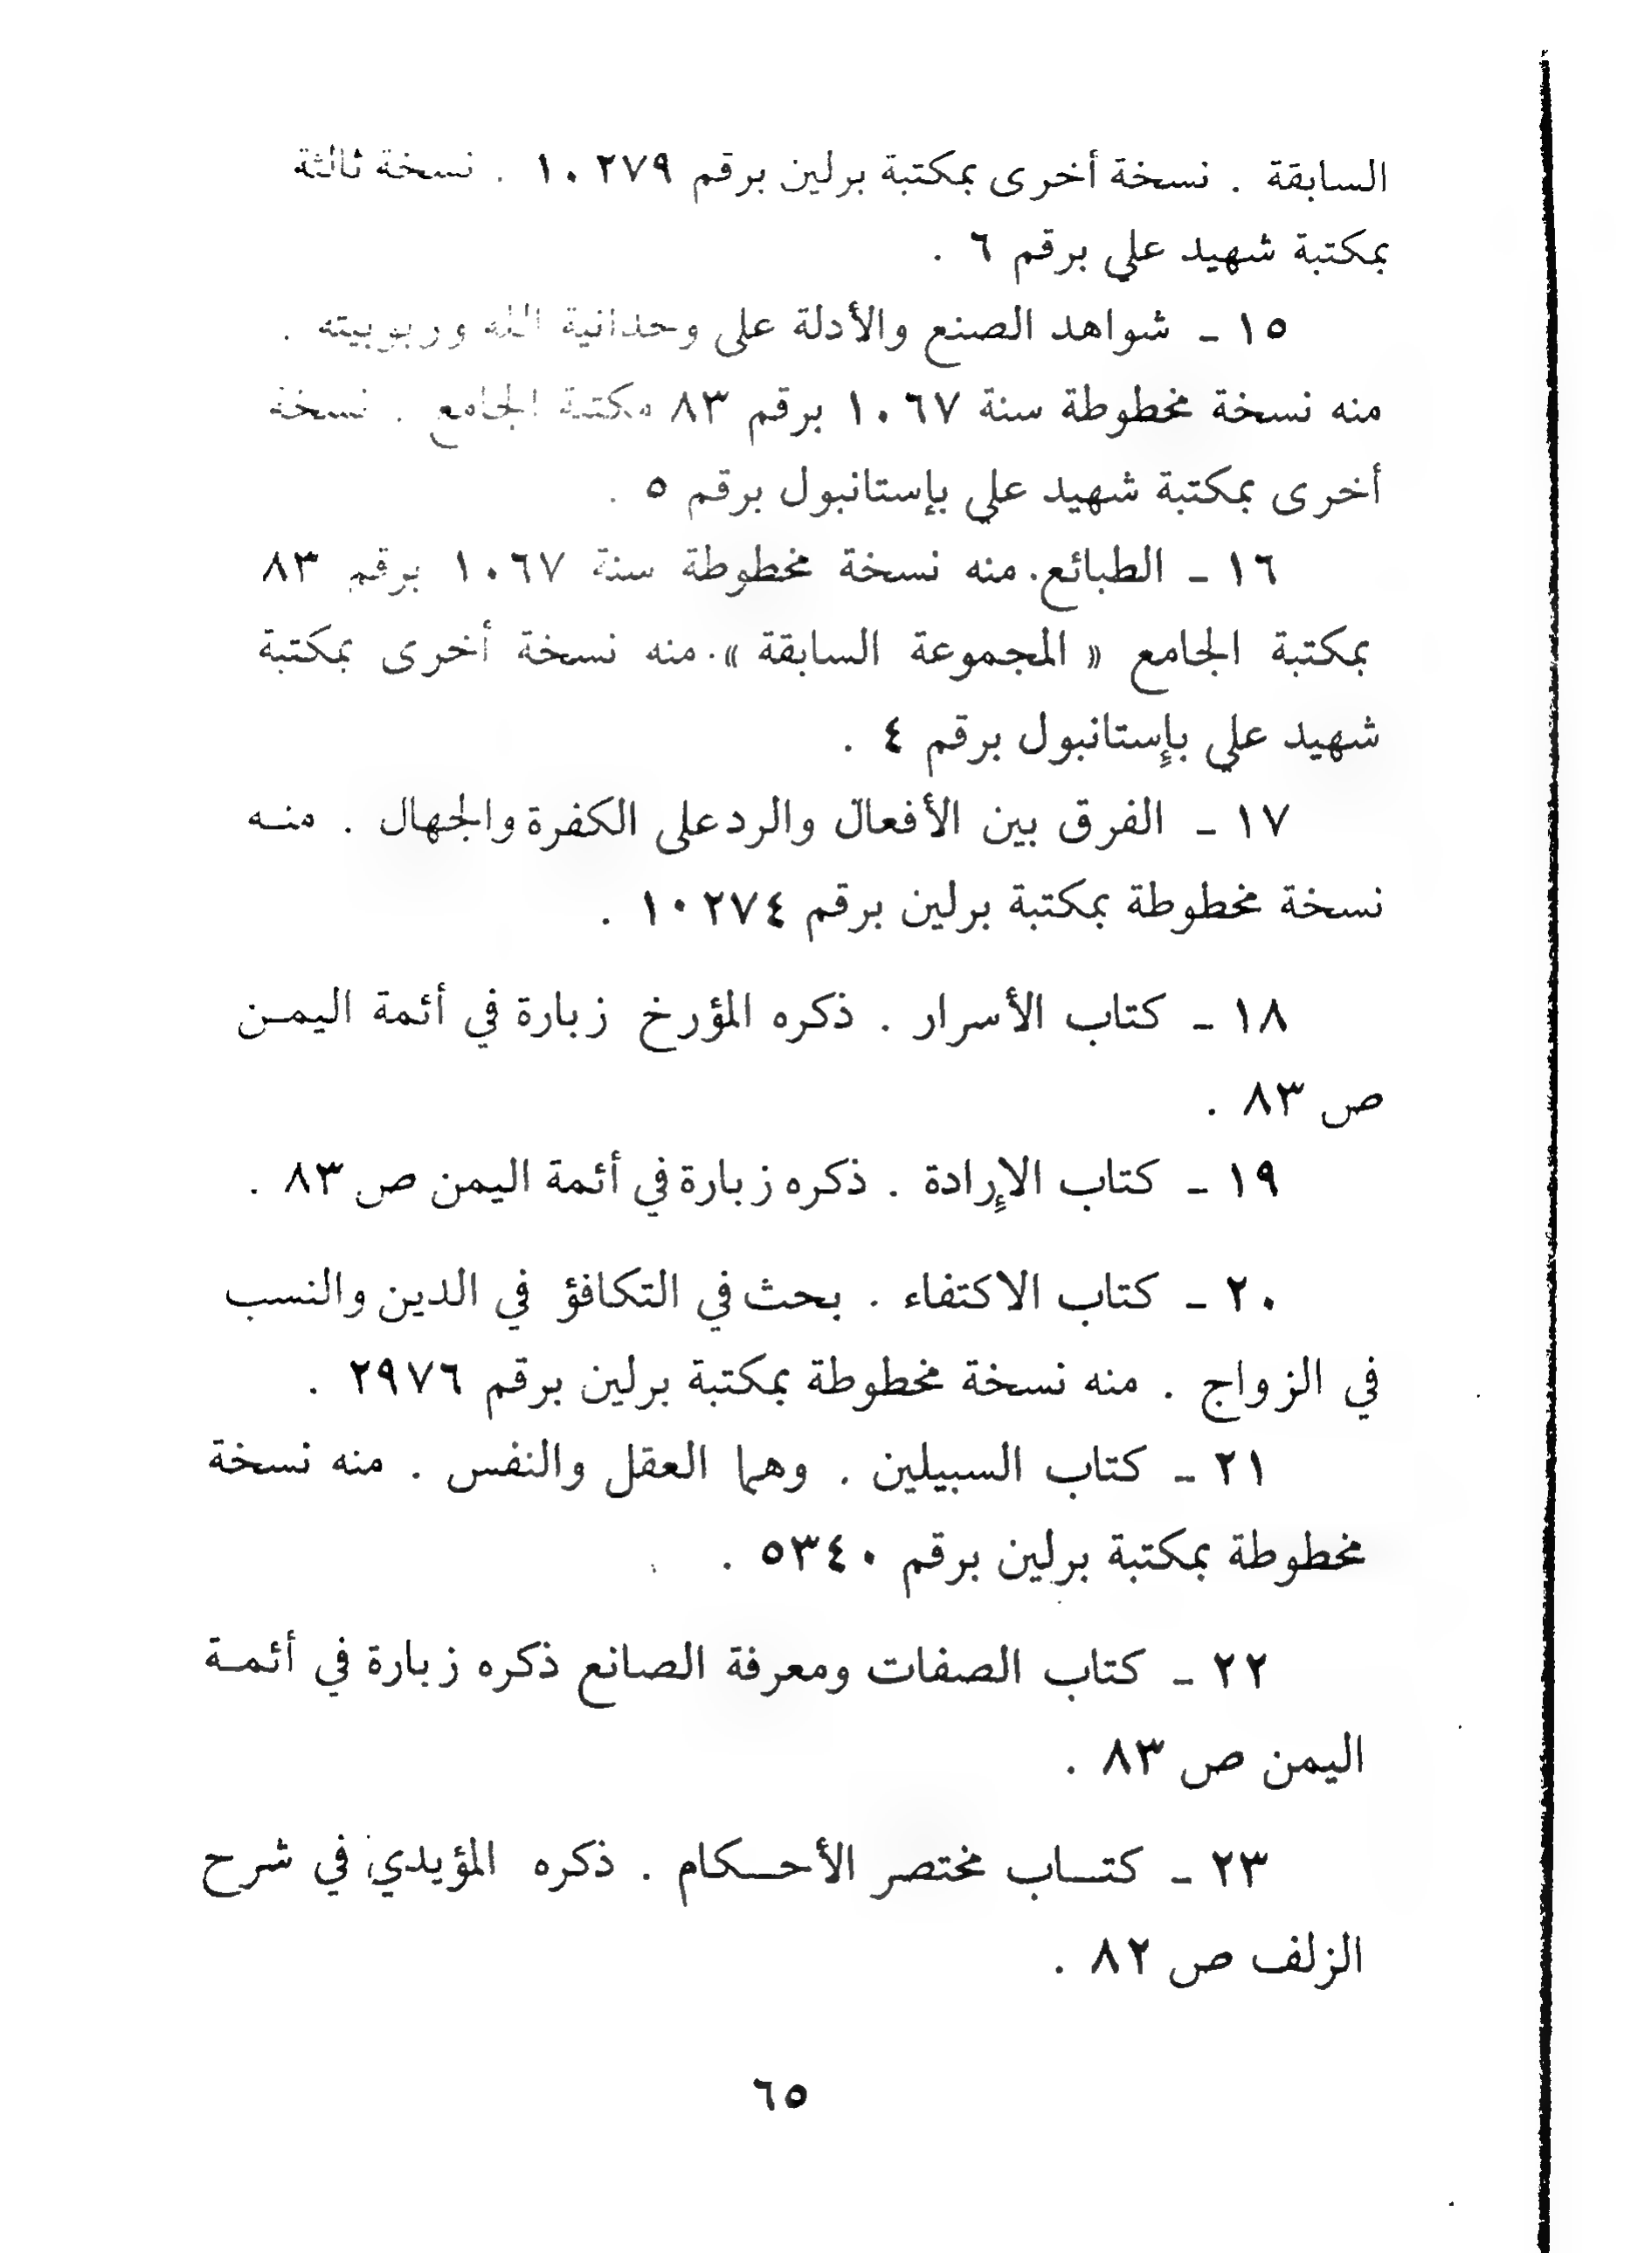 السابقة . نسخة أخرى بمكتبة برلين برقم ١٠٢٧٩ . نسخة ثالثة
بمكتبة شهيد علي برقم ٦ .
١٥ ـ شواهد الصنع والأدلة على وحدانية الله وربوبيته .
منه نسخة مخطوطة سنة ١٠٦٧ برقم ٨٣ مكتبة الجامع . نسخة
أخرى بمكتبة شهيد علي بإستانبول برقم ٥ .
١٦ ـ الطبائع . منه نسخة مخطوطة سنة ١٠٦٧ برقم ٨٣
بمكتبة الجامع « المجموعة السابقة » . منه نسخة أخرى بمكتبة
شهيد علي بإستانبول برقم ٤ .
١٧ ـ الفرق بين الأفعال والرد على الكفرة والجهال . منـه
نسخة مخطوطة بمكتبة برلين برقم ١٠٢٧٤ .
١٨ ـ كتاب الأسرار . ذكره المؤرخ زبارة في أئمة اليمـن
ص ٨٣ .
١٩ ـ كتاب الإرادة . ذكره زبارة في أئمة اليمن ص ٨٣ .
٢٠ ـ كتاب الاكتفاء . بحث في التكافؤ في الدين والنسب
في الزواج . منه نسخة مخطوطة بمكتبة برلين برقم ٢٩٧٦ .
٢١ ـ كتاب السبيلين . وهما العقل والنفس . منه نسخة
مخطوطة بمكتبة برلين برقم ٥٣٤٠ .
٢٢ ـ كتاب الصفات ومعرفة الصانع ذكره زبارة في أئمـة
اليمن ص ٨٣ .
٢٣ ـ كتــاب مختصر الأحــكام . ذكره المؤيدي في شرح
الزلف ص ٨٢ .
٦٥